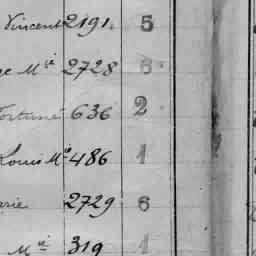 Vincent 2191. 5
ge Mie 2728 6
Fortuné 636 2
Louis Me 486 1
arie 2729 6
Mie 319 1